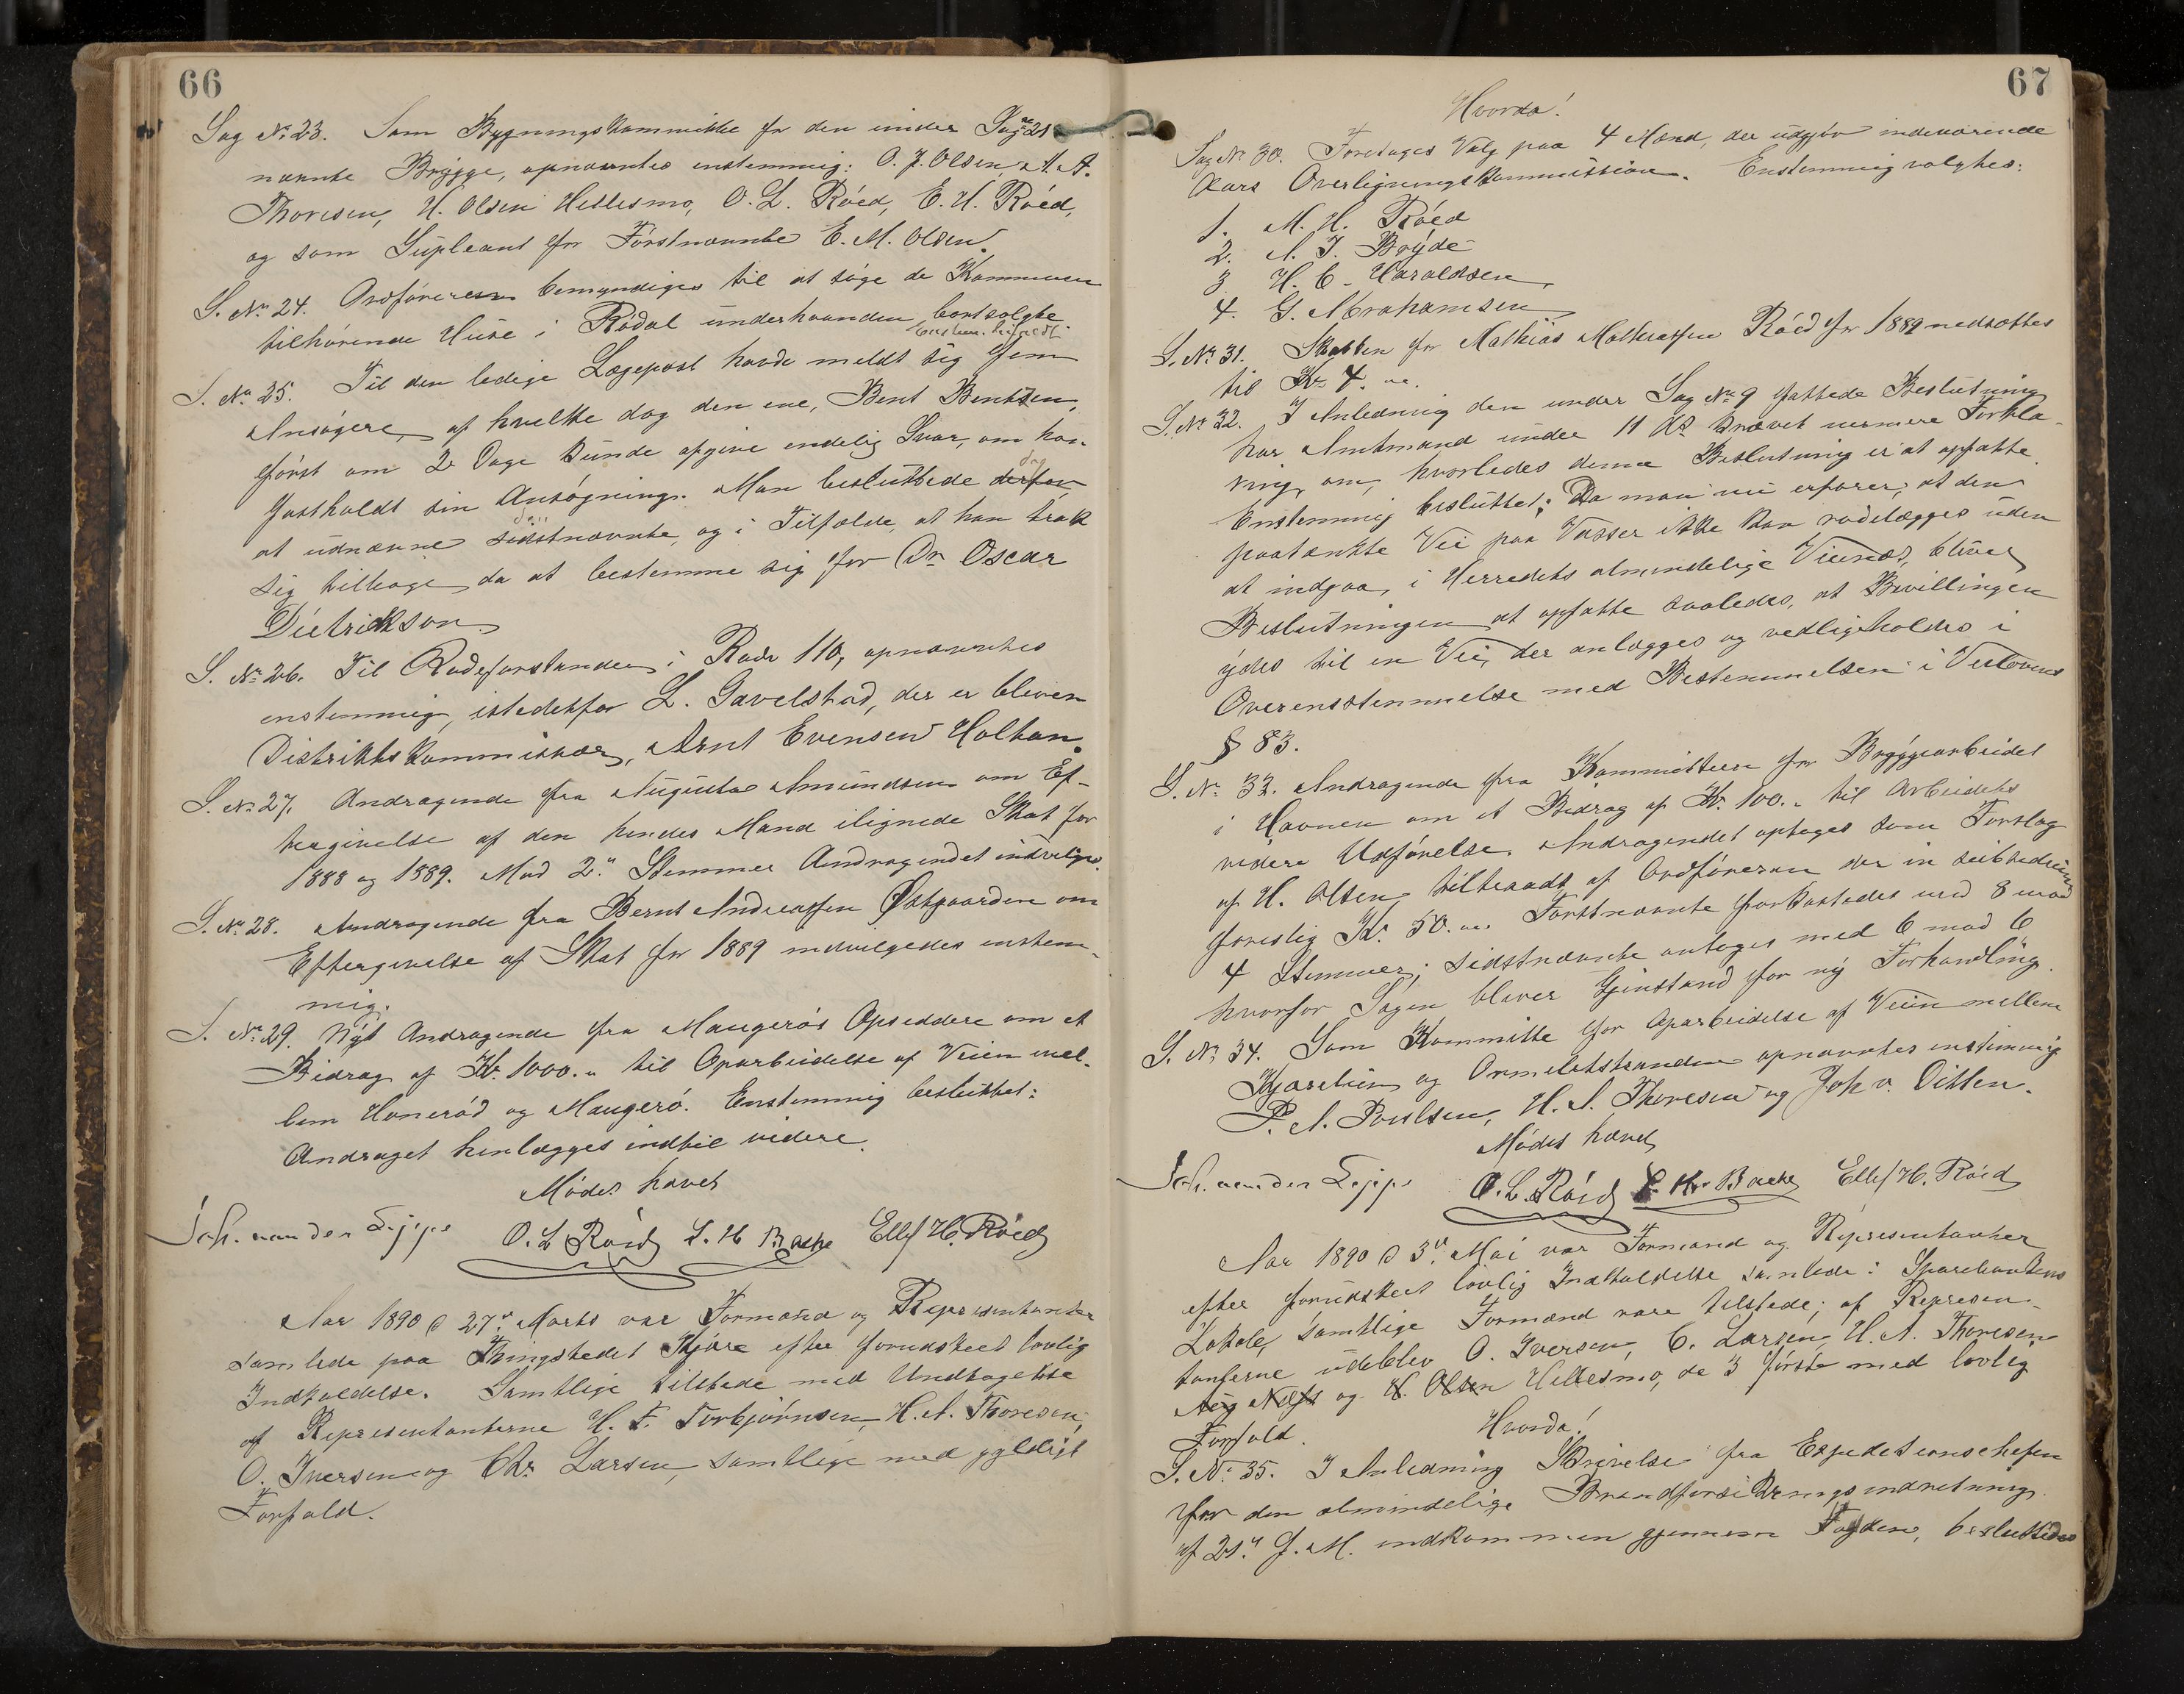 66
Sag No 23. Som Bygningskommitte for den under Sag No 21
nævnte Brygge, opnævntes enstemmig: O. J. Olsen, A. A.
Thoresen, H. Olsen Hellesmo, O. L. Röed, E. H. Röed,
og som Supleant for Förstnævnte E. M. Olsen.
S. No 24. Ordföreren bemyndiges til at söge de Kommunen
tilhörende Huse i Rödal underhaanden bortsolgte
S. No 25. Til den ledige Lægepost havde meldt sig fem
Ansögere, af hvilke dog den ene, Bent Bentzen,
först om 2 Dage kunde afgive endelig Svar, om han
fastholdt sin Ansögning. Man besluttede derfor dog
at udnævne sidstnævnte, og i Tilfælde, at han trak
sig tilbage, da at bestemme sig for Dr Oscar
Dietrickson.
S. No 26. Til Rodeforstander i Rode 110, opnævntes
enstemmig, istedetfor L. Gavelstad, der er bleven
Distriktskommissær, Arnt Evensen Holtan.
S. No 27. Andragende fra Augusta Amundsen om Ef-
tergivelse af den hendes Mand ilignede Skat for
1888 og 1889. Mod 2 Stemmer Andragendet indvilges.
S. No 28. Andragende fra Bernt Andreassen Østgaarden om
Eftergivelse af Skat for 1889 indvilgedes enstem-
mig.
S. No 29. Nyt Andragende fra Maugerös Opsiddere om et
Bidrag af Kr. 1000.- til Oparbeidelse af Veien mel-
lem Honeröd og Maugerö. Enstemmig besluttet:
Andraget henlægges indtil videre.
Mödet hævet
Joh. van der Lippe O. L. Röed L. Kr Backe Ellef H. Röed
Aar 1890 d 27de Marts var Formænd og Repræsentanter
samlede paa Thingstedet Kjöre efter forudskeet lovlig
Indkaldelse. Samtlige tilstede med Undtagelse
af Repræsentanterne H. F. Torbjörnsen, H. A. Thoresen,
O. Iversen og Chr. Larsen, samtlige med gyldigt
Forfald.
67
Hvorda!
Sag No 30. Foretages Valg paa 4 Mænd, der udgjör indeværende
Aars Overligningskommission. Enstemmig valgtes:
1. M. H. Röed
2. A. J. Bryde
3 H. C. Haraldsen
4. G. Abrahamsen
S. No 31. Skatten for Mathias Mathiassen Röed for 1889 nedsattes
til Kr 4.
S. No 32. I Anledning den under Sag No 9 fattede Beslutning
har Amtmand under 11 ds krævet nermere Forkla-
ring om, hvorledes denne Beslutning er at opfatte.
Enstemmig besluttet: Da man nu erfarer, at den
paatænkte Vei paa Vasser ikke kan rodelægges uden
at indgaa i Herredets almindelige Veinæt, bliver
Beslutningen at opfatte saaledes, at Bevillingen
ydes til en Vei, der anlægges og vedligeholdes i
Overensstemmelse med Bestemmelsen i Veilovens
§ 83.
S. No 33. Andragende fra Kommitteen for Bryggearbeidet
i Havnen om et Bidrag af Kr. 100.- til Arbeidets
videre Udförelse. Andragendet optoges som Forslag
af H. Olsen tiltraadt af Ordföreren der in
foreslog Kr. 50. Förstnævnte forkastedes med 8 mod
4 Stemmer; sidstnævnte antoges med 6 mod 6
hvorfor Sagen bliver Gjenstand for ny Forhandling.
S. No 34. Som Kommitte for Oparbeidelse af Veien mellem
Kjærelien og Ormeletstranden opnævntes enstemmig
P. A. Poulsen, H. A. Thoresen og Joh v. Ditten.
Mödet hævet
Joh. van der Lippe O. L. Röed L. Kr. Backe Ellef H. Röed
Aar 1890 d 3de Mai var Formænd og Repræsentanter
efter forudskeet lovlig Indkaldelse samlede i Sparebankens
Lokale, samtlige Formænd vare tilstede; af Repræsen-
tanterne udeblev O. Iversen, C. Larsen, H. A. Thoresen
og H. Olsen Hellesmo, de 3 förste med lovlig
Forfald. Hvorda!
S. No 35. I Anledning Skrivelse fra Expeditionschefen
for den almindelige Brandforsikringsindretning
af 21de f. M. indkommen gjennem Fogden, besluttedes